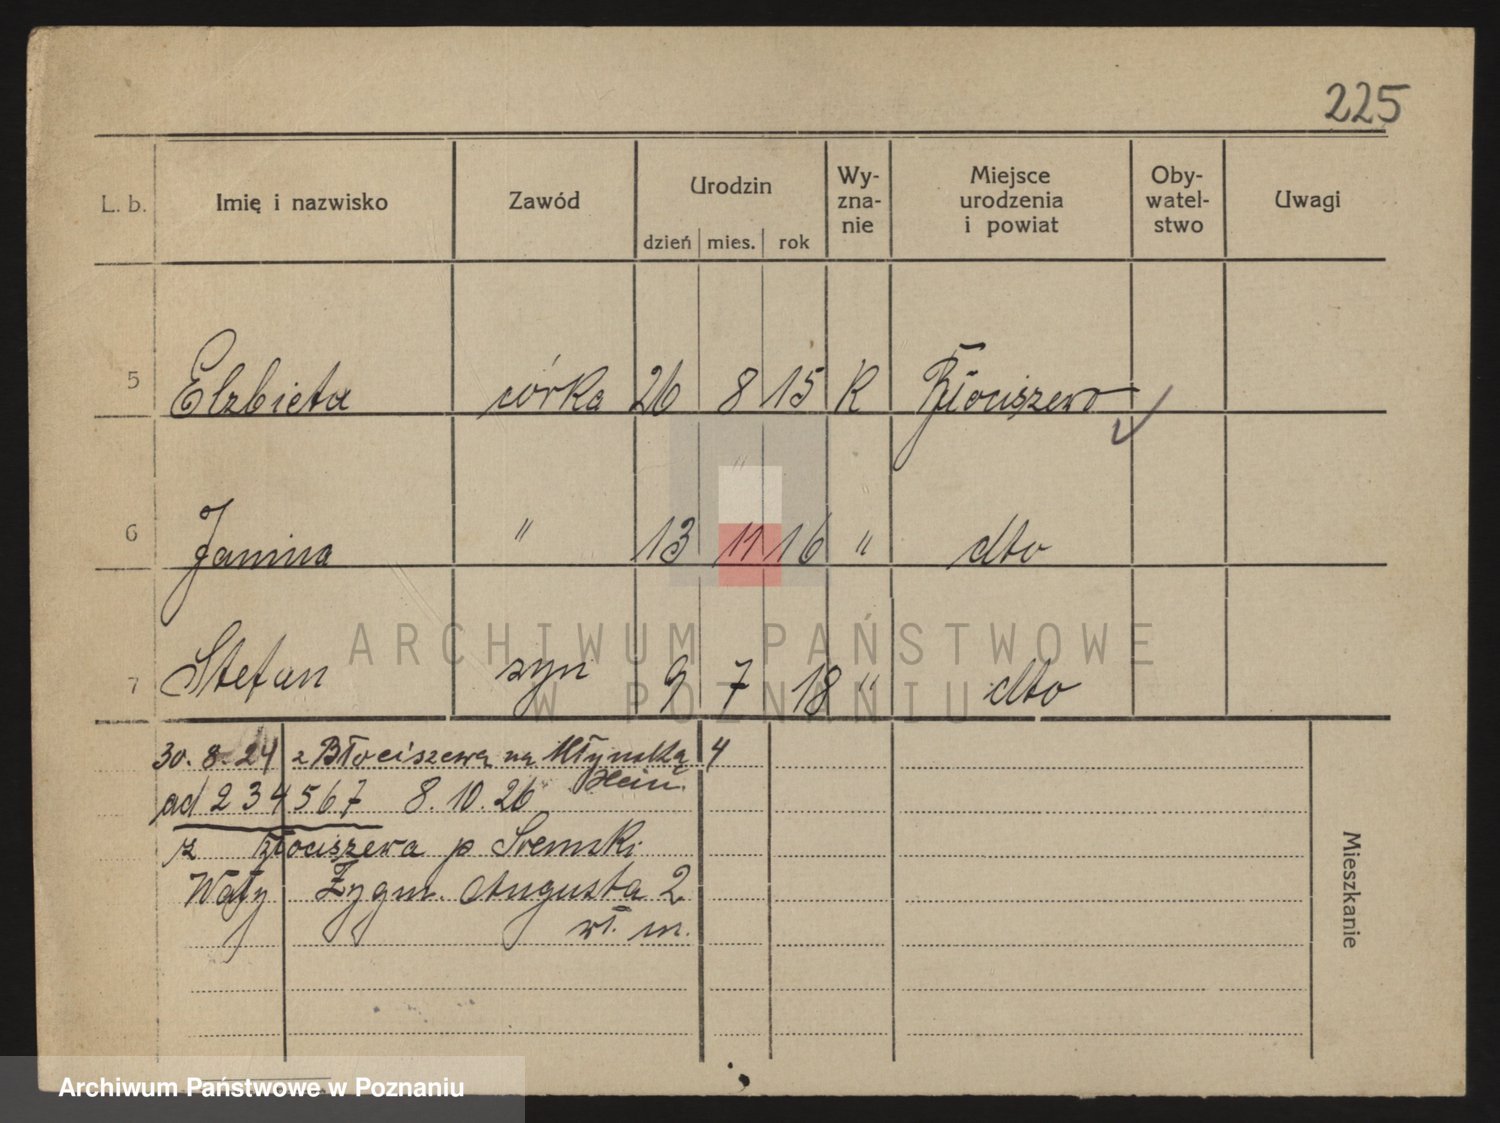 225
L. b. Imię i nazwisko Zawód Urodzin dzień mies. rok Wy-zna-nie Miejsce urodzenia i powiat Oby-watel-stwo Uwagi
5 Elzbieta córka 26 8 15 K Błociszewo
6 Janina " 13 11 16 " dto
7 Stefan syn 9 7 18 " dto
ARCHIWUM PAŃSTWOWE
W POZNANIU
30. 8. 24 z Błociszewa na Młyńską 4
Hein.
ad 2 3 4 5 6 7 8. 10. 26
z Błociszewa p Sremski
Wały Zygm. Augusta 2
wł. m.
Mieszkanie
Archiwum Państwowe w Poznaniu